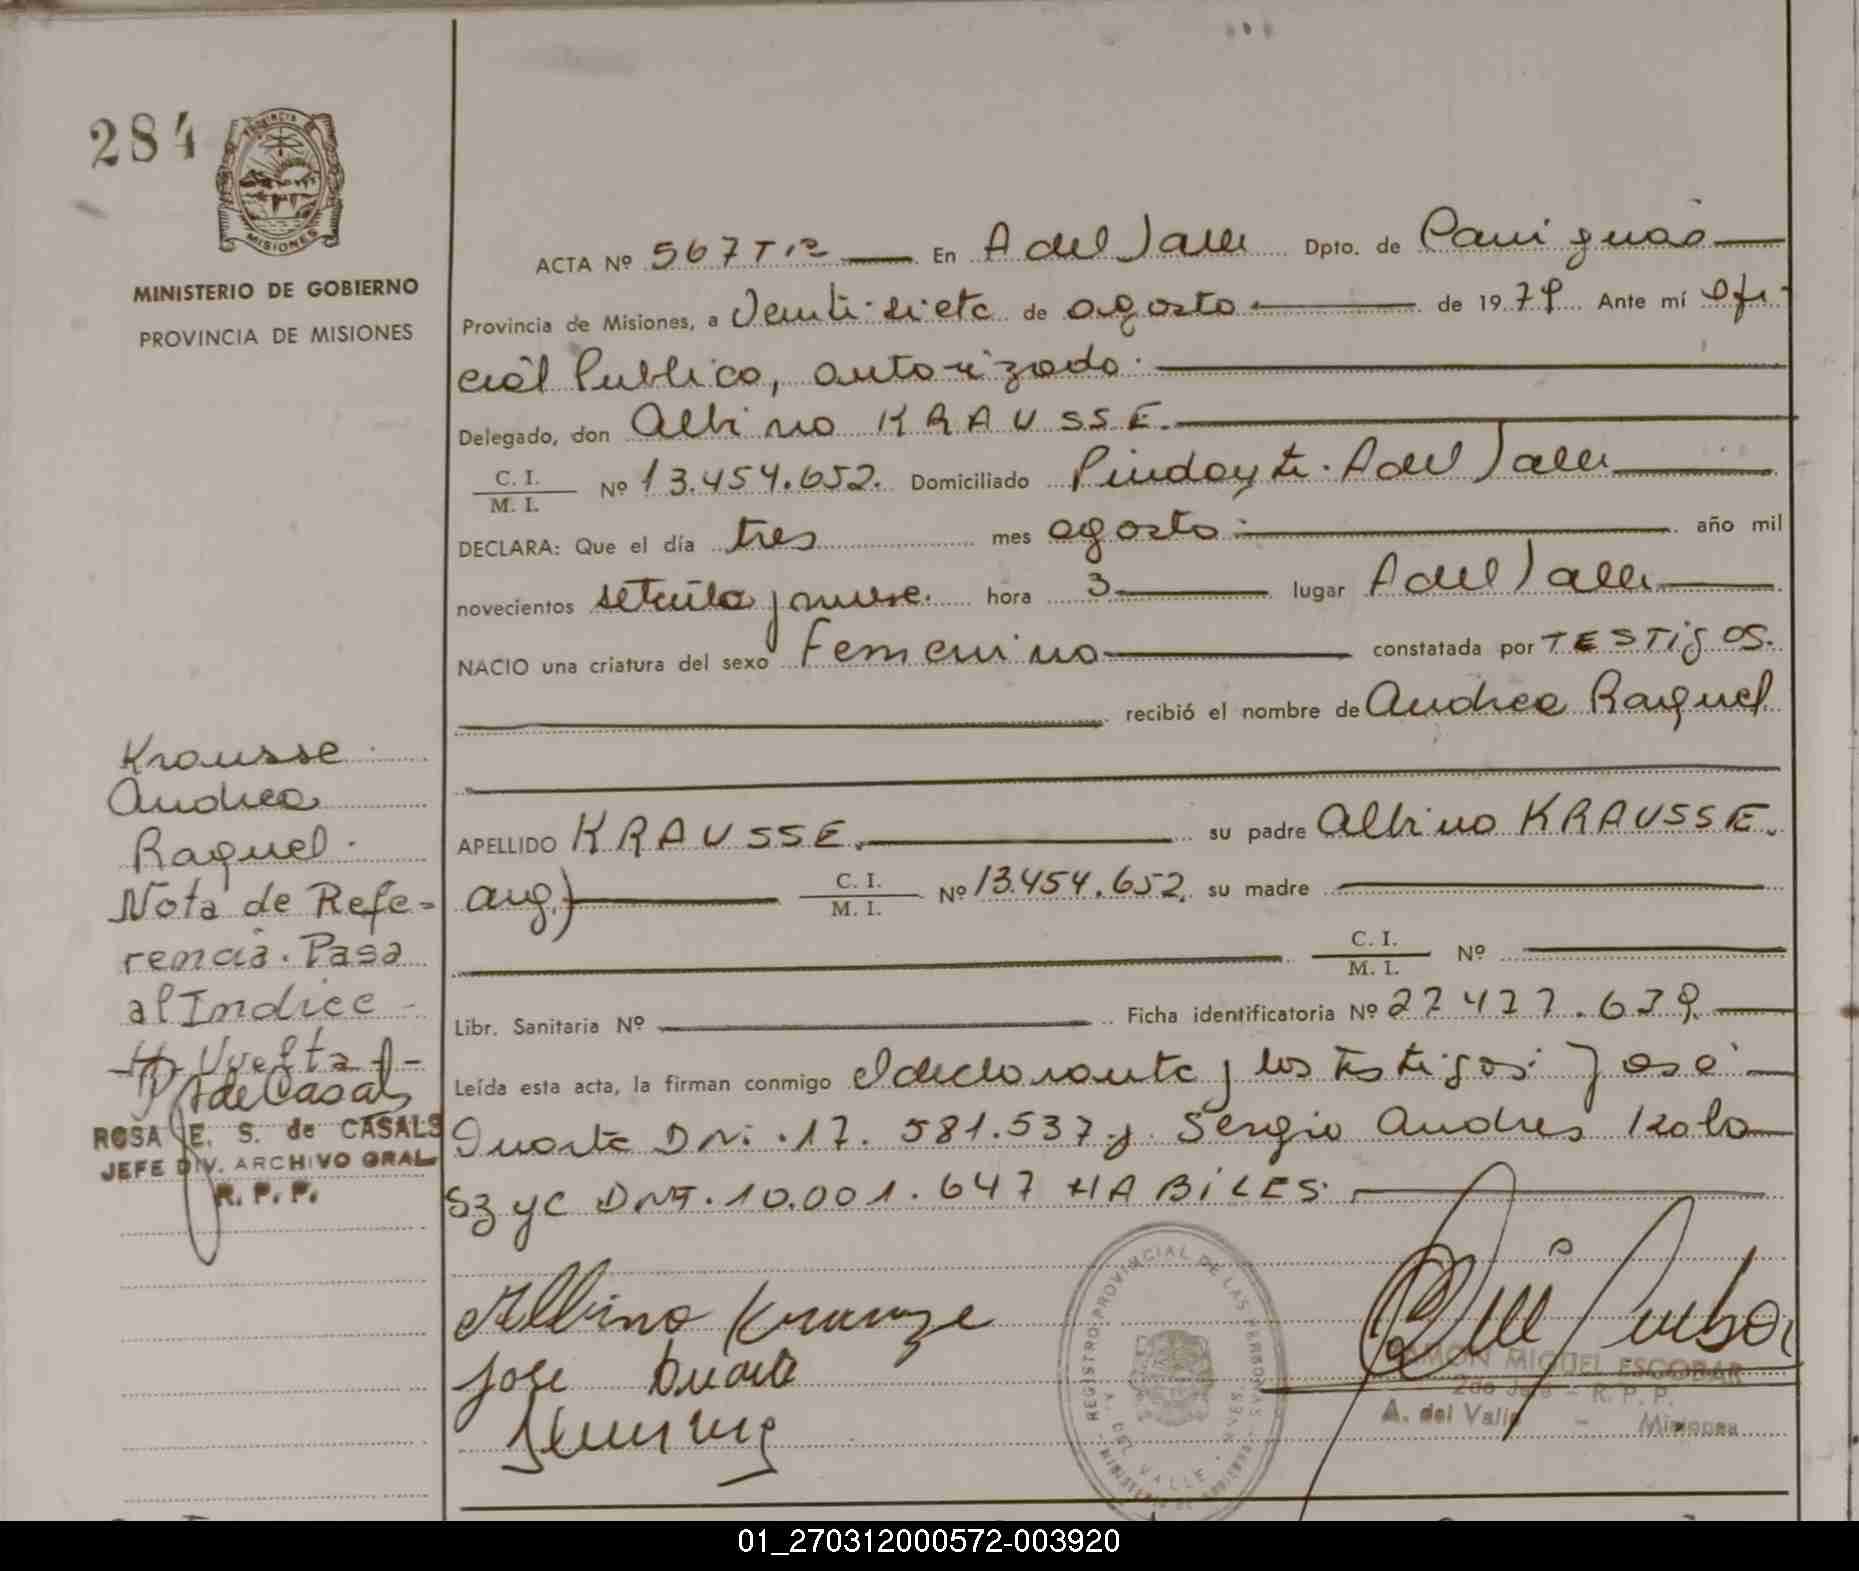 284
PROVINCIA DE
MISIONES
MINISTERIO DE GOBIERNO
PROVINCIA DE MISIONES
ACTA Nº 567 Tº En A del Valle Dpto. de Cainguás
Provincia de Misiones, a Veinti siete de agosto de 1979 Ante mí Ofi-
cial Publico, autorizado
Delegado, don Albino KRAUSSE.
C. I.
M. I. Nº 13.454.652. Domiciliado Pindayti. A del Valle
DECLARA: Que el día tres mes agosto año mil
novecientos setenta y nueve. hora 3 lugar A del Valle
NACIO una criatura del sexo Femenino constatada por TESTigOS.
recibió el nombre de Andrea Raquel
APELLIDO KRAUSSE. su padre Albino KRAUSSE.
arg.) C. I.
M. I. Nº 13.454.652. su madre
C. I.
M. I. Nº
Libr. Sanitaria Nº Ficha identificatoria Nº 27 477.639.
Leída esta acta, la firman conmigo el declarante y los testigos: José
Duarte DNi. 17. 581.537 y Sergio Andres
DNI. 10.001.647 HABiLES.
Krausse
Andrea
Raquel.
Nota de Refe=
rencia. Pasa
al Indice
Vuelta
ROSA E. S. de CASALS
JEFE DIV. ARCHIVO GRAL
R. P. P.
Albino Krauze
Jose Duarte
REGISTRO PROVINCIAL DE LAS PERSONAS
DEL VALLE
RAMON MIGUEL ESCOBAR
2do Jefe - R. P. P.
A. del Valle - Misiones
01_270312000572-003920